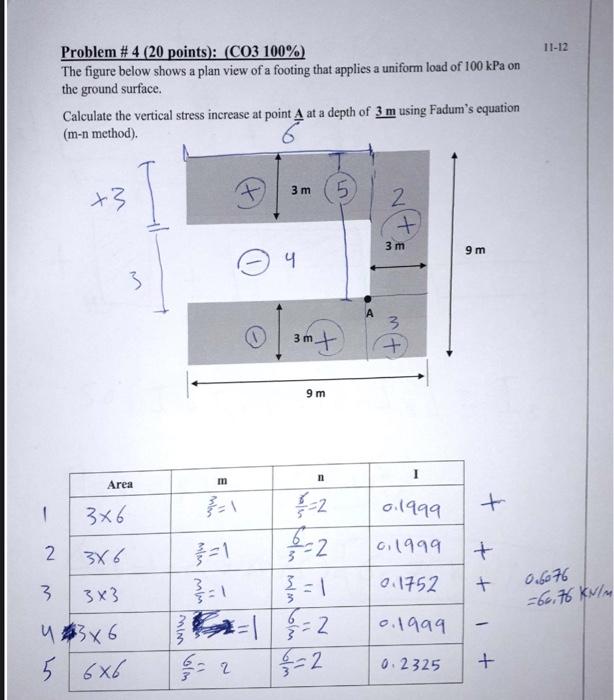 Problem # 4 (20 points): (CO3 100%)
11-12
The figure below shows a plan view of a footing that applies a uniform load of 100 kPa on
the ground surface.
Calculate the vertical stress increase at point A at a depth of 3 m using Fadum's equation
(m-n method).
6
+3
+
3 m
5
2
+
3 m
9 m
3
- 4
A
1
3 m +
3
+
9 m
Area m n I
1 3x6 3/3=1 6/3=2 0.1999 +
2 3x6 3/3=1 6/3=2 0.1999 +
3 3x3 3/3=1 3/3=1 0.1752 +
0.6076
4 3x6 3/3 =1 6/3=2 0.1999 -
5 6x6 6/3=2 6/3=2 0.2325 +